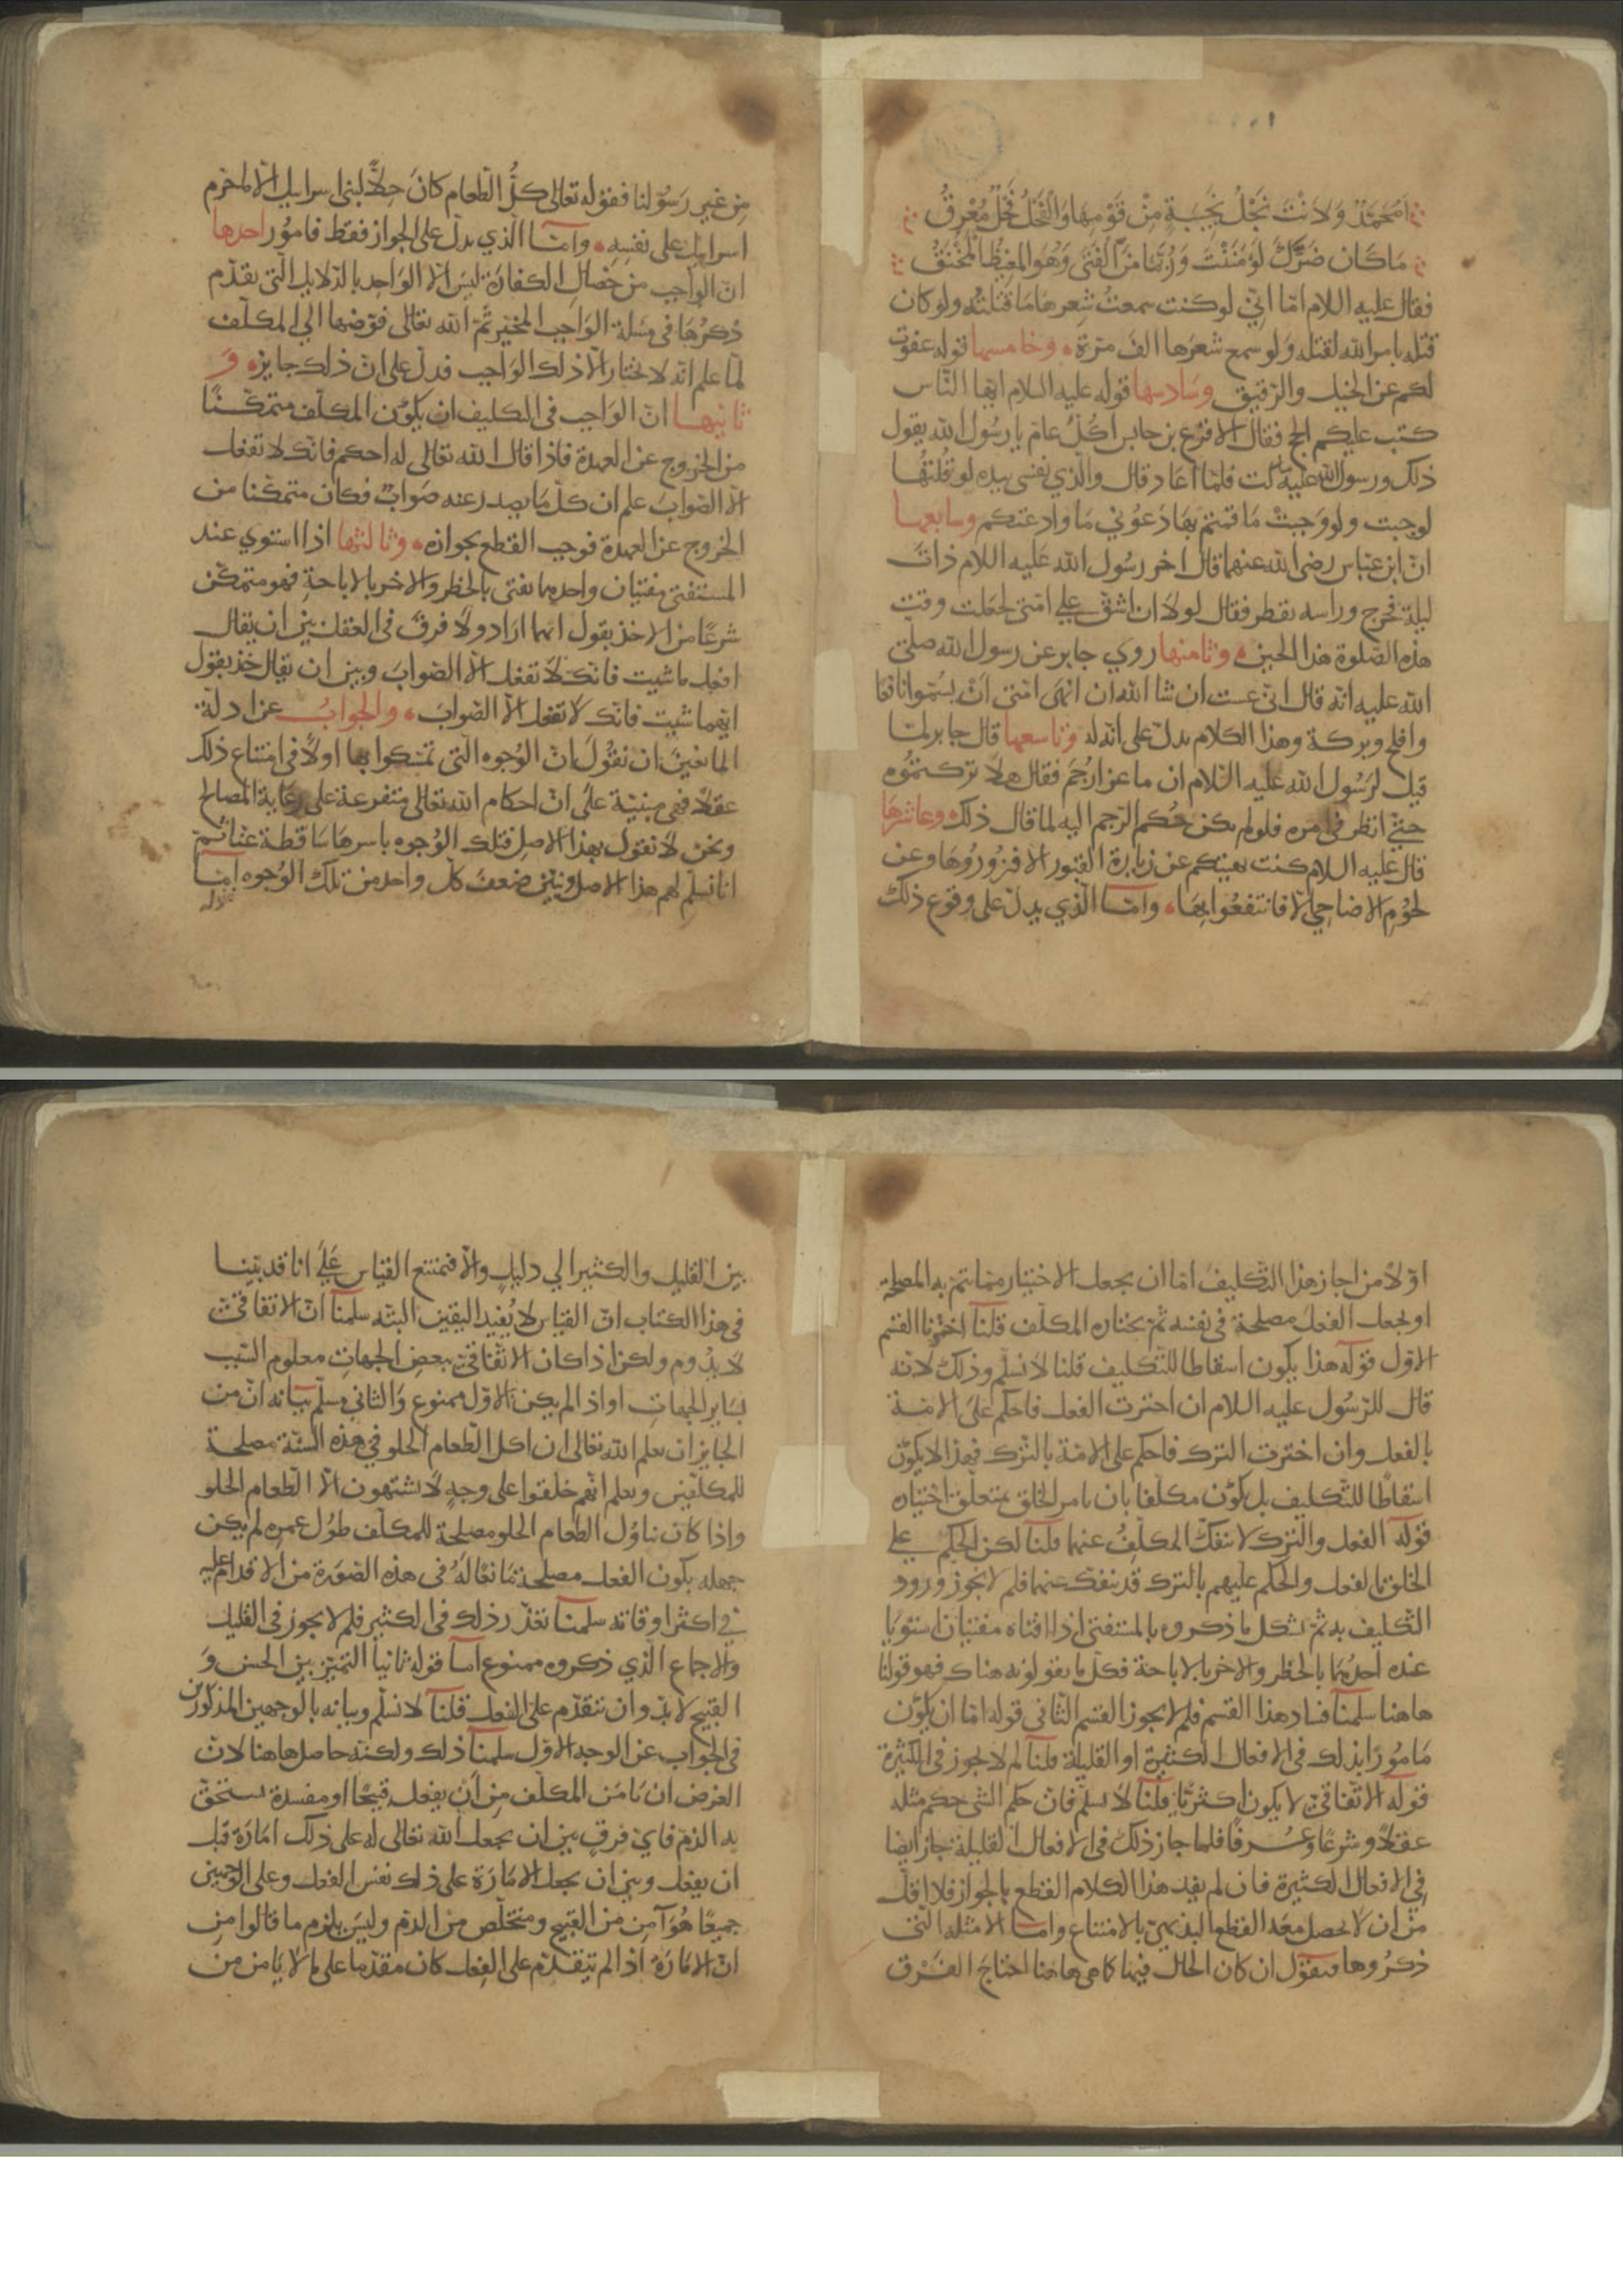 امحمد ولانت نجل نجيبة من قومها والفحل فحل معرق
ما كان ضرك لو مننت وربما من الفتى وهو المغيظ المحنق
فقال عليه السلام اما اني لو كنت سمعت شعرها ما قتلته ولو كان
قتله بامر الله لقتله ولو سمع شعرها الف مرة وخامسها قوله عفوت
لكم عن الخيل والرقيق وسادسها قوله عليه السلام ايها الناس
كتب عليكم الحج فقال الاقرع بن حابس اكل عام يا رسول الله يقول
ذلك ورسول الله عليه ساكت فلما اعاد قال والذي نفسي بيده لو قلتها
لوجبت ولو وجبت ما قمتم بها دعوني ما وادعتكم وسابعها
ان ابن عباس رضي الله عنهما قال اخر رسول الله عليه السلام ذات
ليلة فخرج وراسه يقطر فقال لولا ان اشق على امتي لجعلت وقت
هذه الصلوة هذا الحين وثامنها روي جابر عن رسول الله صلى
الله عليه انه قال اني عست ان شا الله ان انهى امتي ان يسموا نافعا
وافلح وبركة وهذا الكلام يدل على انه له وتاسعها قال جابر لما
قيل لرسول الله عليه السلام ان ماعزا رجم فقال هلا تركتموه
حتى انظر في امره فلو لم يكن حكم الرجم اليه لما قال ذلك وعاشرها
قال عليه السلام كنت نهيتكم عن زيارة القبور الا فزوروها وعن
لحوم الاضاحي الا فانتفعوا بها وامـا الذي يدل على وقوع ذلك
من غير رسولنا فقوله تعالى كل الطعام كان حلا لبني اسرايل الا ما حرم
اسرايل على نفسه وامـا الذي يدل على الجواز فقط فامور احدها
ان الواجب من خصال الكفارة ليس الا الواحد بالدلايل التي تقدم
ذكرها في مسلة الواجب المخير ثم الله تعالى فوضها الى المكلف
لما علم انه لا يختار الا ذلك الواجب فدل على ان ذلك جايز و
ثانيها ان الواجب في التكليف ان يكون المكلف متمكنا
من الخروج عن العهدة فاذا قال الله تعالى له احكم فانك لا تفعل
الا الصواب علم ان كل ما يصدر عنه صواب فكان متمكنا من
الخروج عن العهدة فوجب القطع بجوازه وثالثها اذا استوي عند
المستفتي مفتيان واحدهما يفتي بالحظر والاخر بالاباحة فهو متمكن
شرعا من الاخذ بقول ايهما اراد ولا فرق في العقل بين ان يقال
افعل ما شيت فانك لا تفعل الا الصواب وبين ان يقال خذ بقول
ايهما شيت فانك لا تفعل الا الصواب والجواب عن ادلة
المانعين ان نقول ان الوجوه التي تمسكوا بها اولا في امتناع ذلك
عقلا فهي مبنية على ان احكام الله تعالى متفرعة على رعاية المصالح
ونحن لا نقول بهذا الاصل فتلك الوجوه باسرها ساقطة عنا ثم
انا نسلم لهم هذا الاصل ونبين ضعف كل واحد من تلك الوجوه امـا
اولا من اجاز هذا التكليف اما ان يجعل الاختيار مما يتم به المصلحة
او يجعل الفعل مصلحة في نفسه ثم يختاره المكلف قلنا اخترنا القسم
الاول قوله هذا يكون اسقاطا للتكليف قلنا لا نسلم وذلك لانه
قال للرسول عليه السلام ان اخترت الفعل فاحكم على الامة
بالفعل وان اخترت الترك فاحكم على الامة بالترك فهذا لا يكون
اسقاطا للتكليف بل يكون مكلفا بان يامر الخلق بمتعلق اختياره
قوله الفعل والترك لا ينفك المكلف عنهما قلنا لكن الحكم على
الخلق بالفعل والحكم عليهم بالترك قد ينفك عنهما فلم لا يجوز ورود
التكليف به ثم يشكل ما ذكروه بالمستفتي اذا افتاه مفتيان استويا
عنده احدهما بالحظر والاخر بالاباحة فكل ما يقولونه هناك فهو قولنا
هاهنا سلمنا فساد هذا القسم فلم لا يجوز القسم الثاني قوله اما ان يكون
مامورا بذلك في الافعال الكثيرة او القليلة قلنا لم لا يجوز في الكثيرة
قوله الاتفاقي لا يكون اكثريا قلنا لا نسلم فان حكم الشي حكم مثله
عقلا وشرعا وعرفا فلما جاز ذلك في الافعال القليلة جاز ايضا
في الافعال الكثيرة فان لم يفد هذا الكلام القطع بالجواز فلا اقل
من ان لا يحصل معه القطع البديهي بالامتناع وامـا الامثلة التي
ذكروها فنقول ان كان الحال فيها كما هي هاهنا احتاج الفرق
بين القليل والكثير الي دليل والا فيمتنع القياس على انا قد بينا
في هذا الكتاب ان القياس لا يفيد اليقين البته سلمنا ان الاتفاقي
لا يدوم ولكن اذا كان الاتفاقي ببعض الجهات معلوم السبب
بساير الجهات او اذا لم يكن الاول ممنوع والثاني مسلم بيانه ان من
الجايز ان يعلم الله تعالى ان اكل الطعام الحلو في هذه السنة مصلحة
للمكلفين ويعلم انهم خلقوا على وجه لا يشتهون الا الطعام الحلو
واذا كان تناول الطعام الحلو مصلحة للمكلف طول عمره لم يكن
جهله بكون الفعل مصلحة مانعا له في هذه الصورة من الاقدام عليه
في اكثر اوقاته سلمنا تعذر ذلك في الكثير فلم لا يجوز في القليل
والاجماع الذي ذكروه ممنوع امـا قوله ثانيا التمييز بين الحسن و
القبيح لا بد وان يتقدم على الفعل قلنا لا نسلم وبيانه بالوجهين المذكورين
في الجواب عن الوجه الاول سلمنا ذلك ولكنه حاصل هاهنا لان
الغرض ان يامن المكلف من ان يفعل قبيحا او مفسدة يستحق
به الذم فاي فرق بين ان يجعل الله تعالى له على ذلك امارة قبل
ان يفعل وبين ان يجعل الامارة على ذلك نفس الفعل وعلى الوجهين
جميعا هو آمن من القبيح ومتخلص من الذم وليس يلزم ما قالوا من
ان الامارة اذا لم يتقدم على الفعل كان مقدما على ما لا يامن من